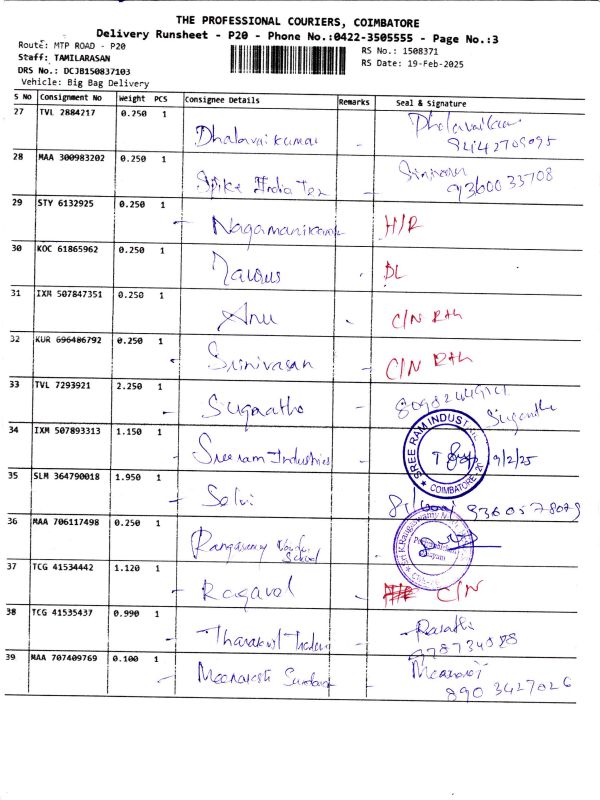 THE PROFESSIONAL COURIERS, COIMBATORE
Delivery Runsheet - P20 - Phone No.:0422-3505555 - Page No.:3
Route: MTP ROAD - P20
RS No.: 1508371
Staff: TAMILARASAN
RS Date: 19-Feb-2025
DRS No.: DCJB150837103
Vehicle: Big Bag Delivery
S No Consignment No Weight PCS Consignee Details Remarks Seal & Signature
27 TVL 2884217 0.250 1 Dhalavaikumar -
28 MAA 300983202 0.250 1 Spike India Tex - 9360033708
29 STY 6132925 0.250 1 - H/R
30 KOC 61865962 0.250 1 - DL
31 IXM 507847351 0.250 1 Anu - C/N
32 KUR 696486792 0.250 1 - Srinivasan - C/N
33 TVL 7293921 2.250 1 -
34 IXM 507893313 1.150 1 - Sreeram Industries - SREE RAM INDUST COIMBATORE 9/2/25
35 SLM 364790018 1.950 1 - Selvi 9360578079
36 MAA 706117498 0.250 1 School
37 TCG 41534442 1.120 1 - C/N
38 TCG 41535437 0.990 1 -
39 MAA 707409769 0.100 1 - 8903427026